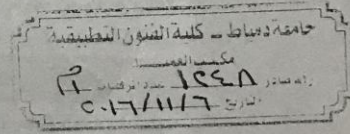 جامعة دمياط - كلية الفنون التطبيقية
مكتب العميد
رقم صادر ١٢٤٨ عدد المرفقات
التاريخ ٢٠١٦/١١/٦